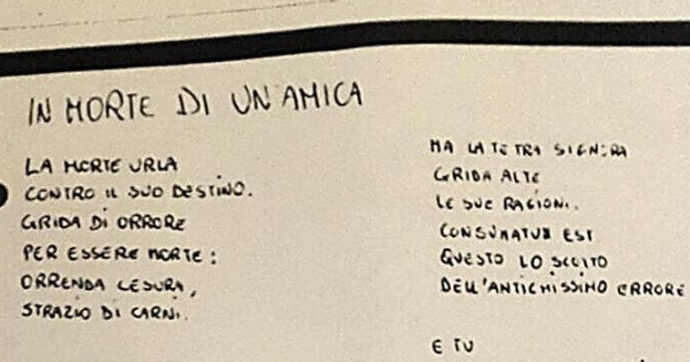 IN MORTE DI UN'AMICA
LA MORTE URLA
CONTRO IL SUO DESTINO.
GRIDA DI ORRORE
PER ESSERE MORTE:
ORRENDA CESURA,
STRAZIO DI CARNI.
MA LA TETRA SIGNORA
GRIDA ALTE
LE SUE RAGIONI.
CONSUMATUM EST
QUESTO LO SCELTO
DELL'ANTICHISSIMO ERRORE
E TU